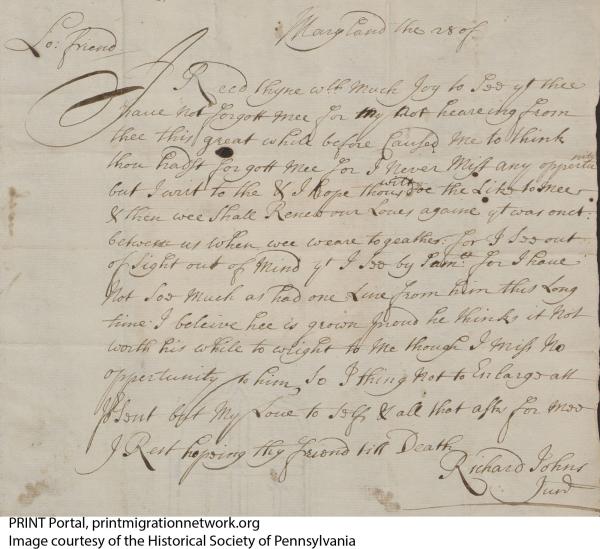 Maryland the 28 of
Lo: friend
I Recd thyne wth Much Joy to See yt thee
have not forgott Mee for my Not heareing from
thee this great while before Caused Me to think
thou hadst forgott Mee for I Never Mist any opportunity
but I writ to the & I hope thou wilt doe the Like to Mee
& then wee Shall Renew our Loves againe yt was onct:
between us when wee weare togeather: for I See out
of Sight out of Mind yt I See by Samll: for I have
Not Soe Much as had one Line from him this Long
time I beleive hee is grown proud he thinks it Not
worth his while to wright to Me though I miss No
opportunity to him, So I thing Not to Enlarge att
psent but My Love to Self & all that asks for Mee
I Rest hopeing thy friend till Death
Richard Johns
Junr
PRINT Portal, printmigrationnetwork.org
Image courtesy of the Historical Society of Pennsylvania